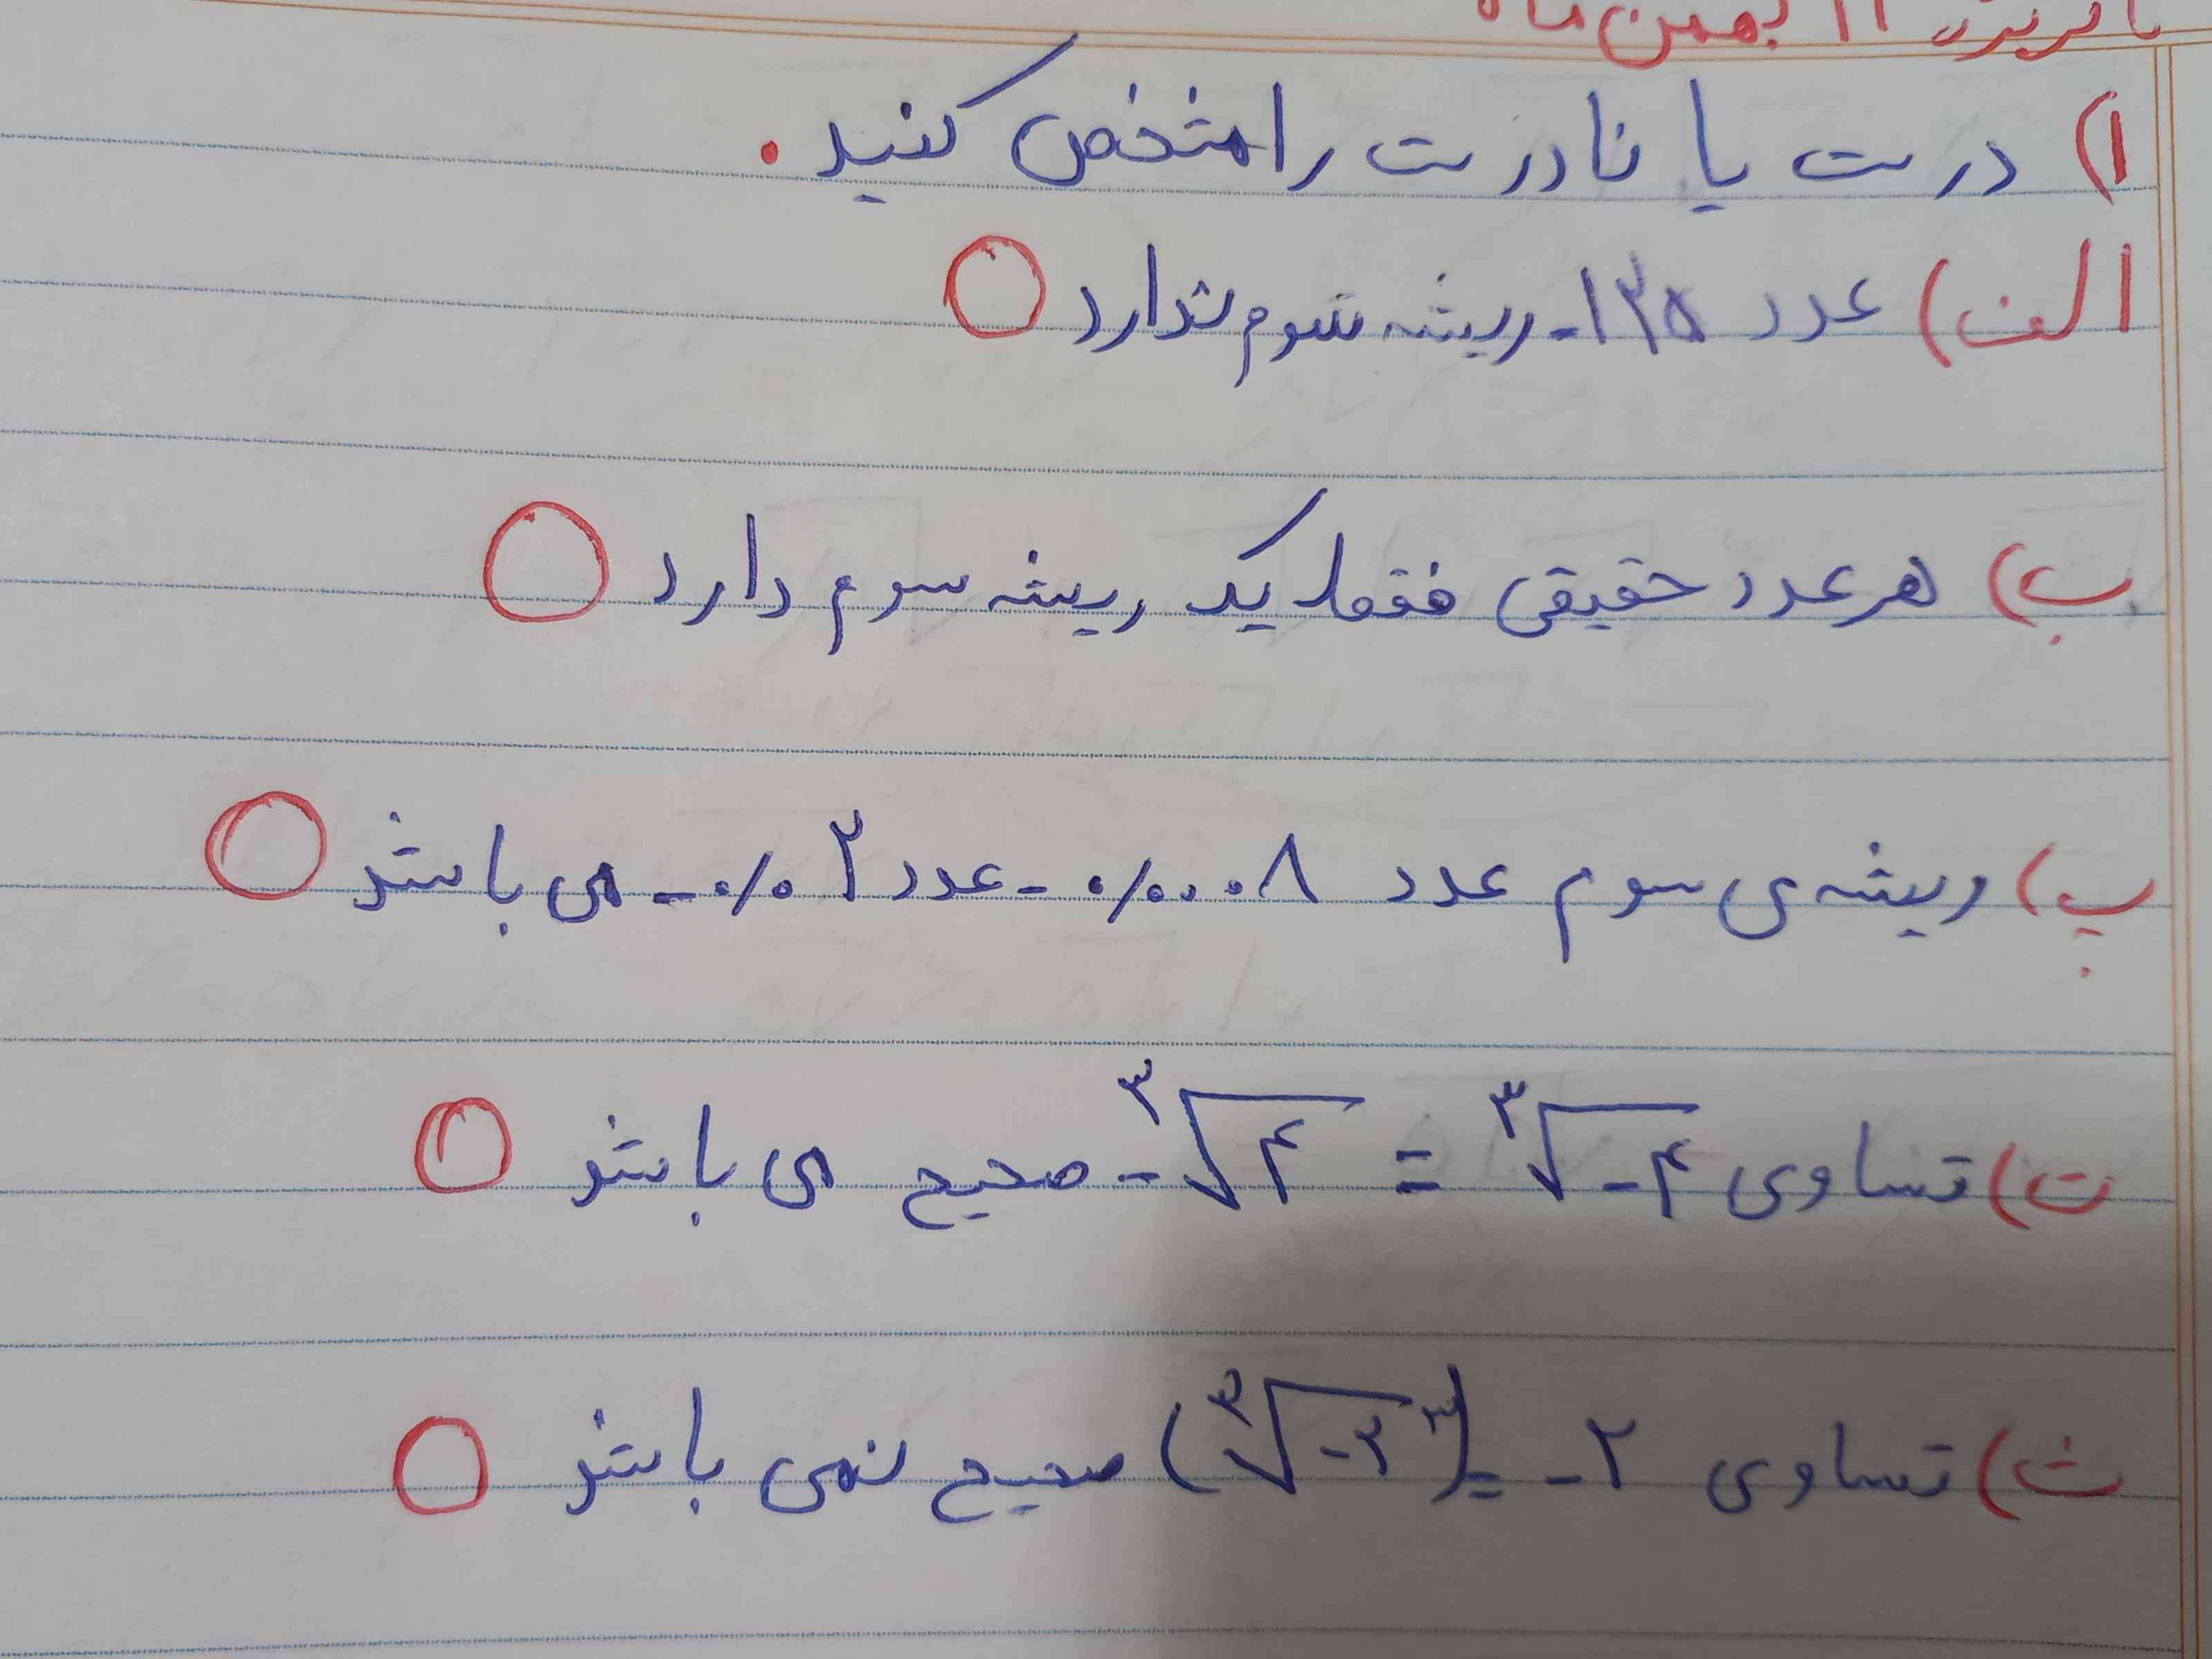 ۱۲ بهمن ماه
۱) درست یا نادرست را مشخص کنید.
الف) عدد ۱۲۵- ریشه سوم ندارد
ب) هر عدد حقیقی فقط یک ریشه سوم دارد
پ) ریشه‌ی سوم عدد ۰/۰۰۰۸- عدد ۰/۰۲- می باشد
ت) تساوی ∛-۴ = -∛۴ صحیح می باشد
ث) تساوی (∛-۲)³ = -۲ صحیح نمی باشد